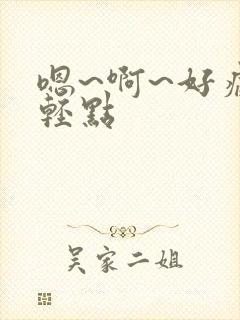 嗯~啊~好
輕點
吴家二姐